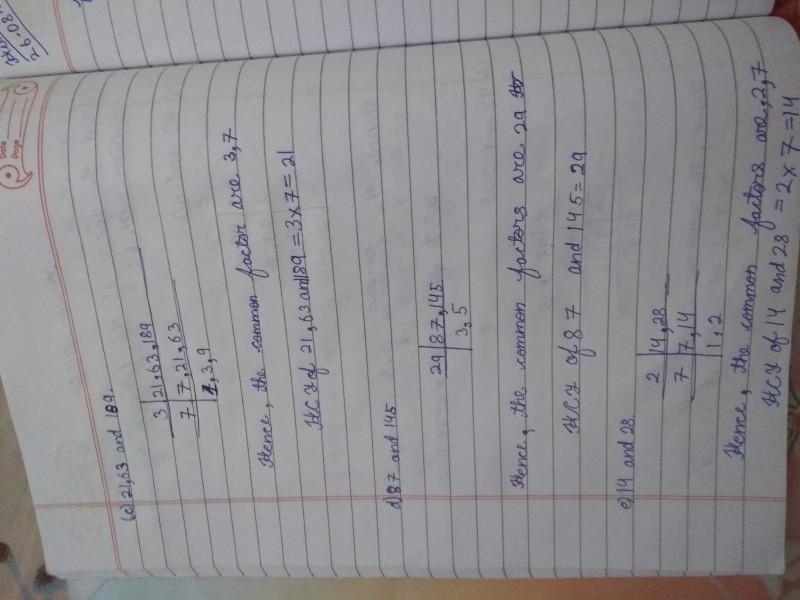 26.08.
Date
Page
(c) 21,63 and 189.
3 | 21,63,189
7 | 7,21,63
1,3,9
Hence, the common factor are 3,7
HCF of 21,63 and 189 = 3 x 7 = 21
d) 87 and 145
29 | 87,145
3,5
Hence, the common factors are 29
HCF of 87 and 145 = 29
e) 14 and 28
2 | 14,28
7 | 7,14
1,2
Hence, the common factors are, 2,7
HCF of 14 and 28 = 2 x 7 = 14